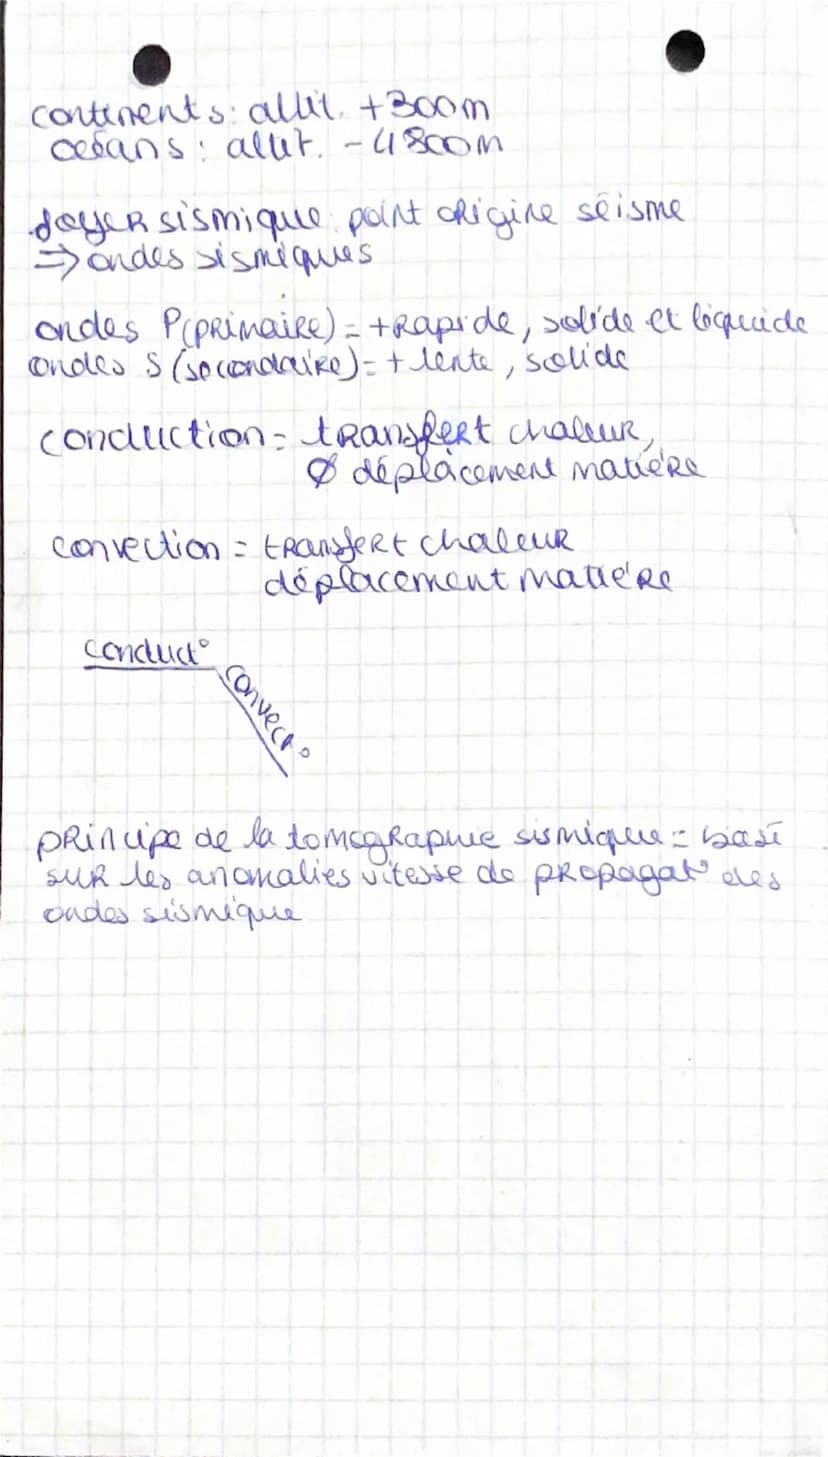 continents : altit. +300m
océans : altit. -4800m
foyer sismique : point origine séisme
⇒ ondes sismiques
ondes P(primaire) = +rapide, solide et liquide
ondes S (secondaire) = + lente, solide
conduction = transfert chaleur,
Ø déplacement matière
convection = transfert chaleur
déplacement matière
conduct°
convect°
principe de la tomographie sismique = basé
sur les anomalies vitesse de propagat° des
ondes sismique